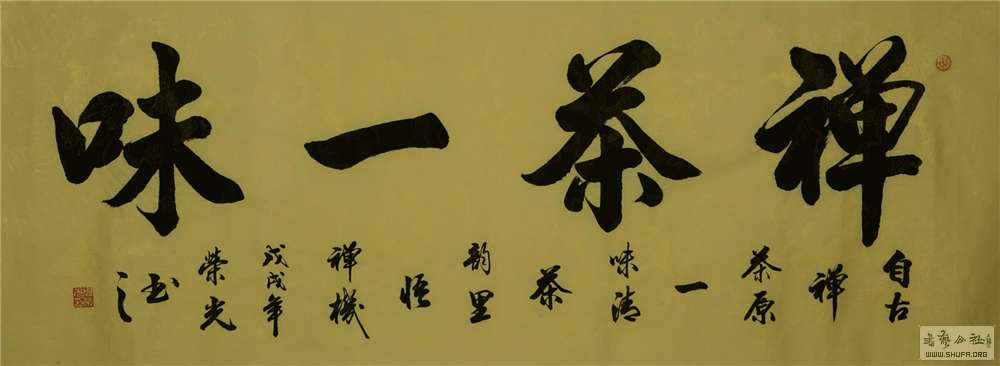 禅茶一味
自古
禅
茶原
一
味清
茶
韵里
悟
禅機
戊戌年
榮光
書之
WWW.SHUFA.ORG